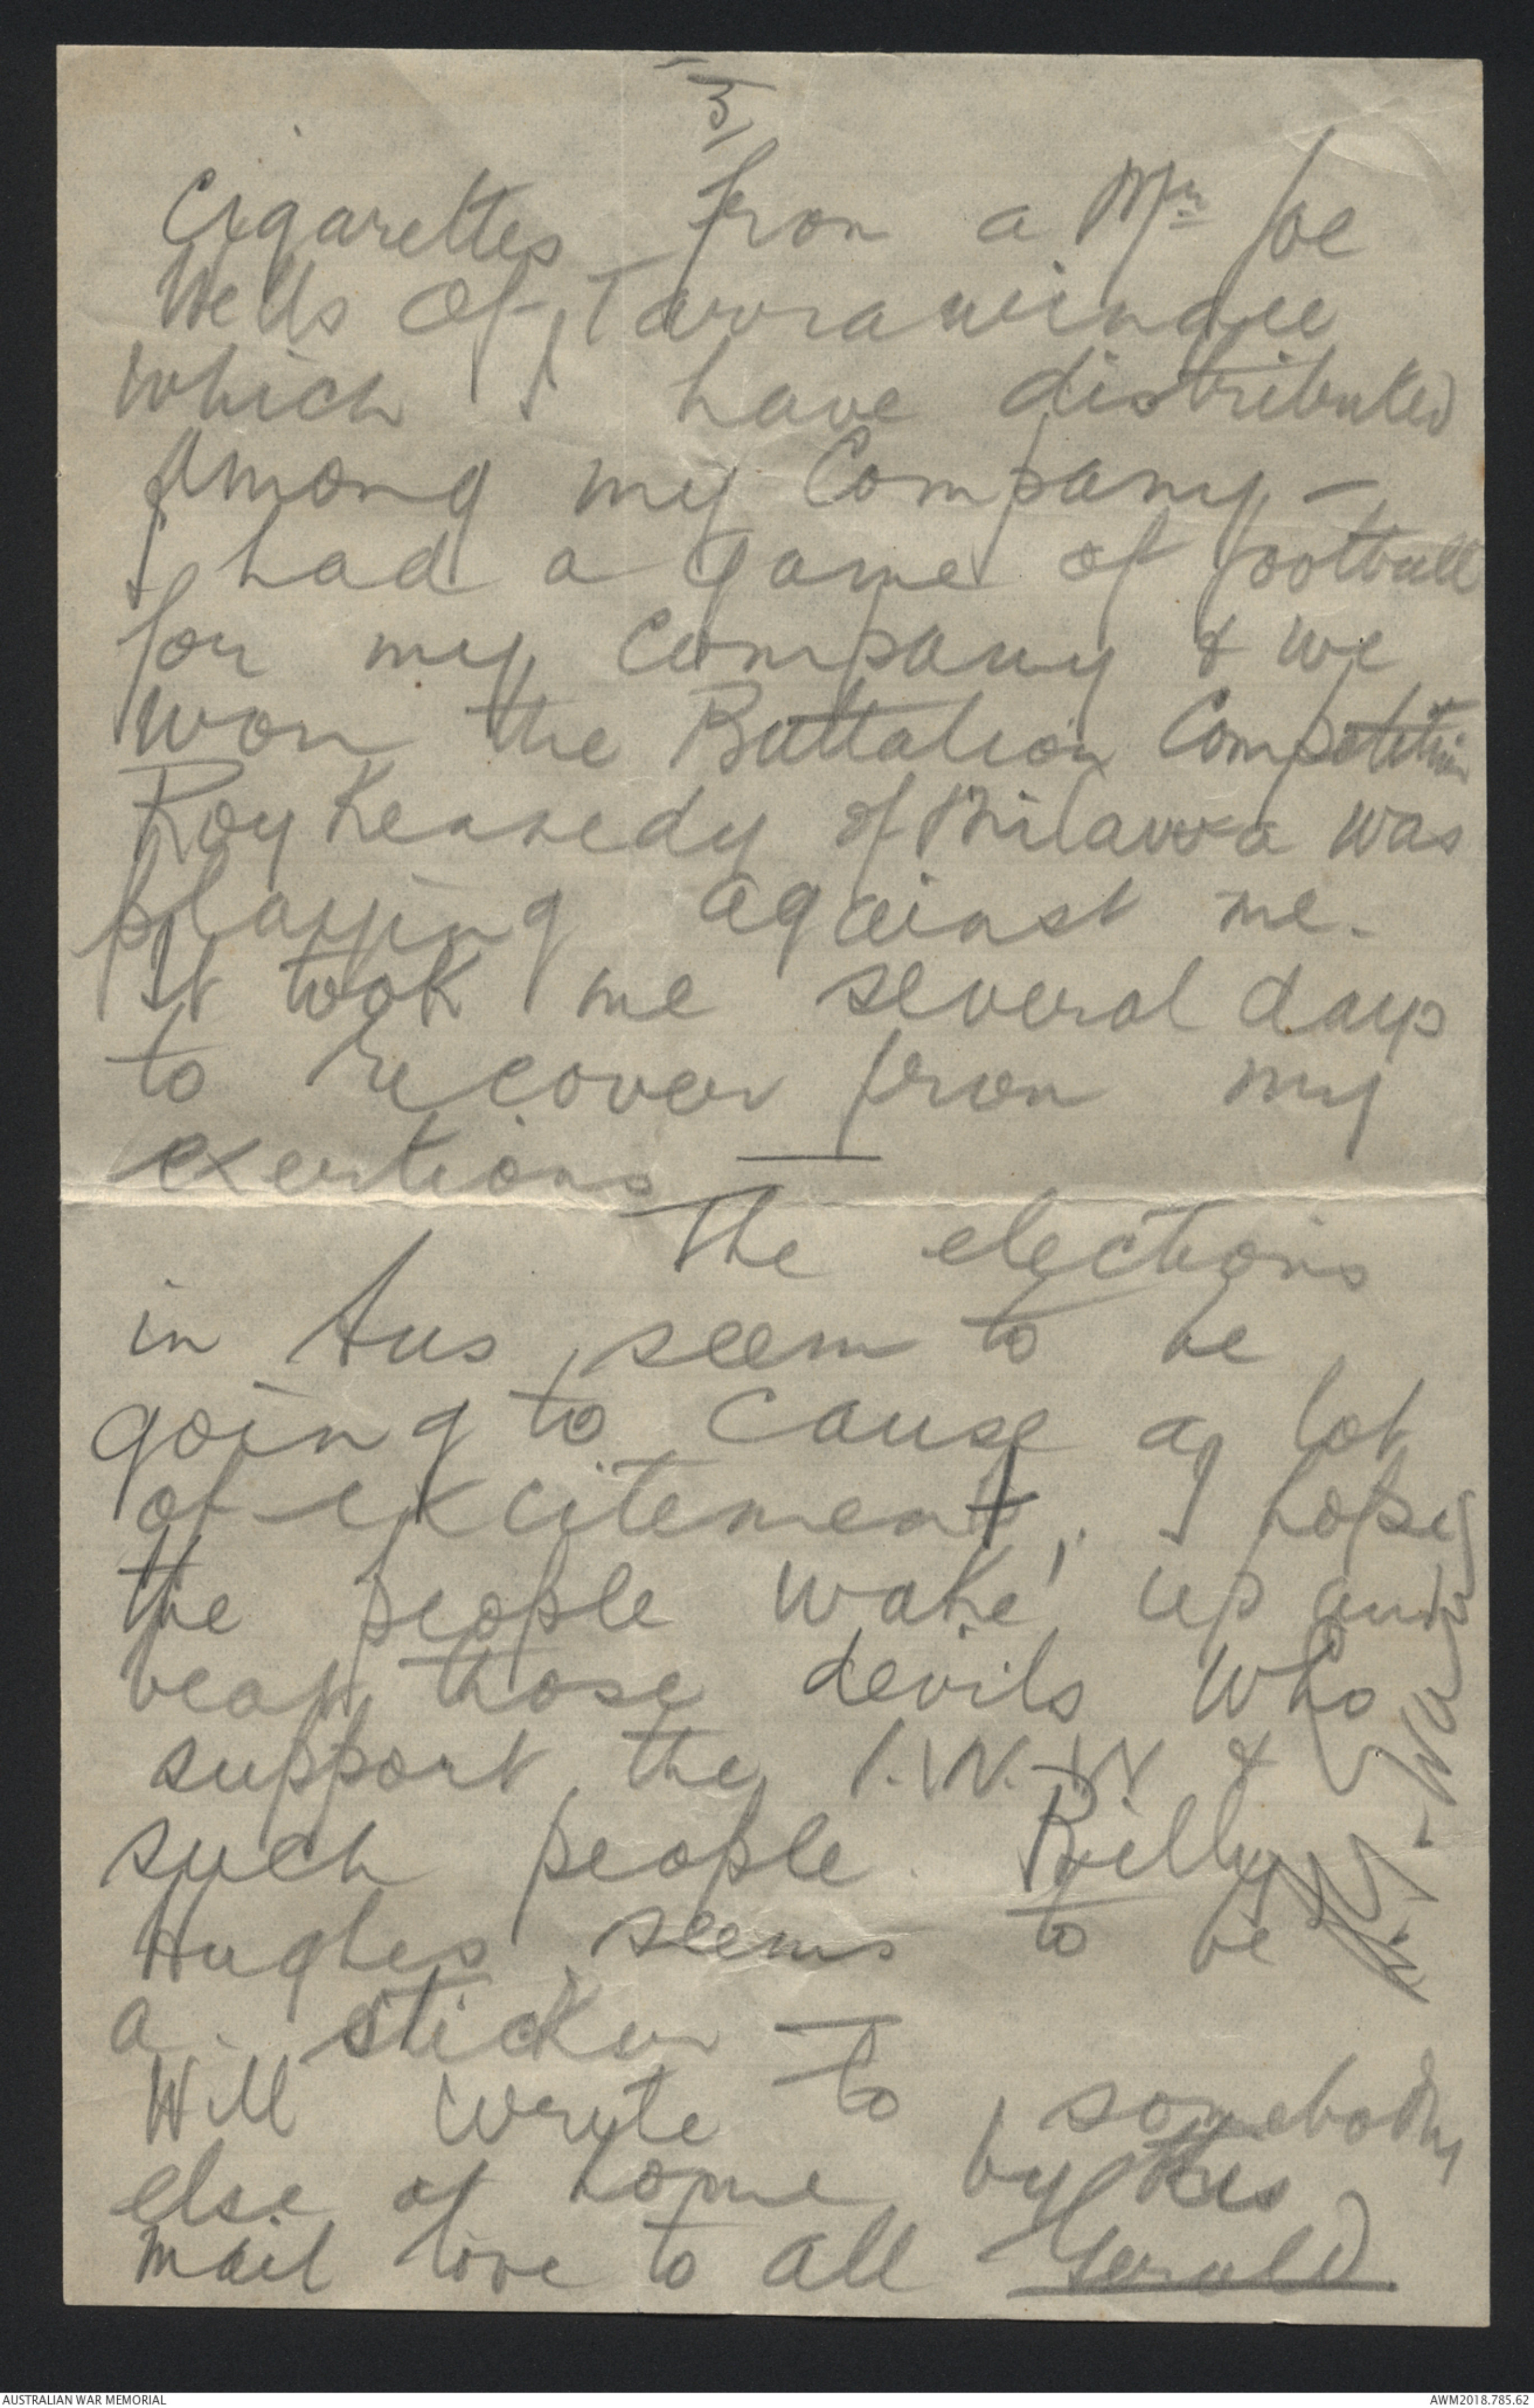 3/
Cigarettes from a Mr Joe
Wells of Tarrawingee
which I have distributed
among my Company –
I had a game of football
for my Company & we
won the Battalion Competition
Roy Kennedy of Milawa was
playing against me.
It took me several days
to recover from my
exertions —
The elections
in Aus seem to be
going to cause a lot
of excitement, I hope
the people wake up and
beat those devils who
support the I.W.W &
such people. Billy
Hughes seems to be
a sticker —
Will write to somebody
else at home by this
mail love to all Gerald
AUSTRALIAN WAR MEMORIAL
AWM2018.785.62